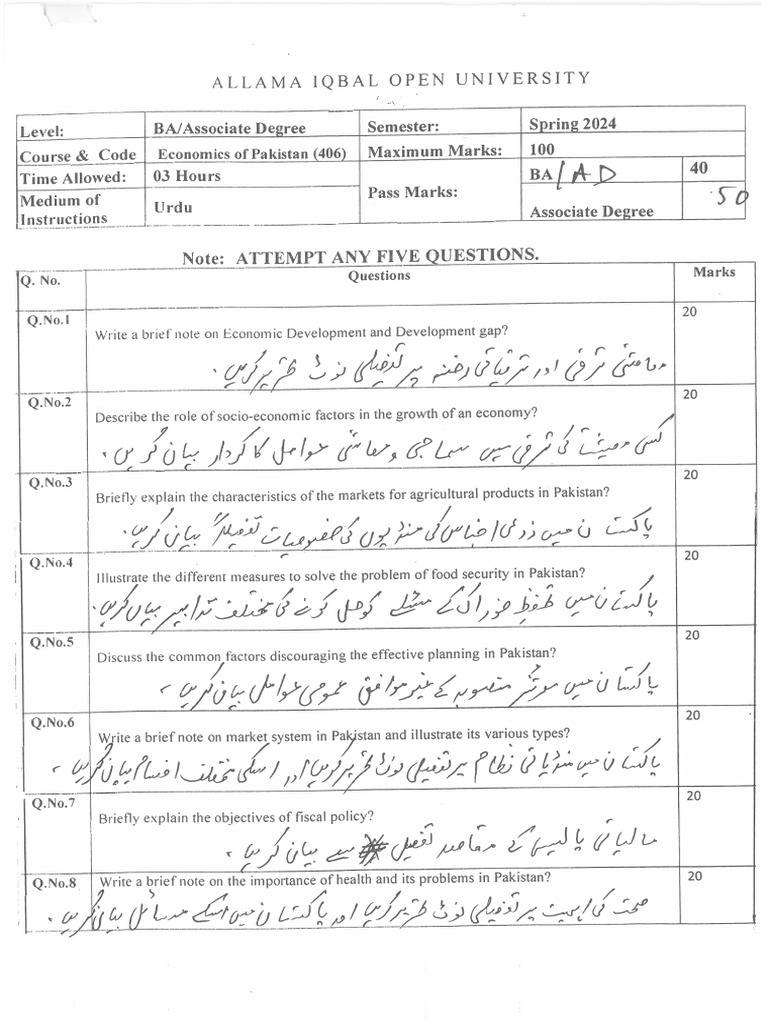 ALLAMA IQBAL OPEN UNIVERSITY
Level: BA/Associate Degree Semester: Spring 2024
Course & Code Economics of Pakistan (406) Maximum Marks: 100
Time Allowed: 03 Hours Pass Marks: BA/AD 40
Medium of Instructions Urdu Associate Degree 50
Note: ATTEMPT ANY FIVE QUESTIONS.
Q. No. Questions Marks
Q.No.1 Write a brief note on Economic Development and Development gap? 20
معاشی ترقی اور ترقیاتی رخنہ پر تفصیلی نوٹ تحریر کریں۔
Q.No.2 Describe the role of socio-economic factors in the growth of an economy? 20
کسی معیشت کی ترقی میں سماجی و معاشی عوامل کا کردار بیان کریں۔
Q.No.3 Briefly explain the characteristics of the markets for agricultural products in Pakistan? 20
پاکستان میں زرعی اجناس کی منڈیوں کی خصوصیات تفصیلاً بیان کریں۔
Q.No.4 Illustrate the different measures to solve the problem of food security in Pakistan? 20
پاکستان میں تحفظِ خوراک کے مسئلے کو حل کرنے کی مختلف تدابیر بیان کریں۔
Q.No.5 Discuss the common factors discouraging the effective planning in Pakistan? 20
پاکستان میں موثر منصوبہ کے غیر موافق عمومی عوامل بیان کریں۔
Q.No.6 Write a brief note on market system in Pakistan and illustrate its various types? 20
پاکستان میں منڈیاتی نظام پر تفصیلی نوٹ تحریر کریں اور اسکی مختلف اقسام بیان کریں۔
Q.No.7 Briefly explain the objectives of fiscal policy? 20
مالیاتی پالیسی کے مقاصد تفصیل سے بیان کریں۔
Q.No.8 Write a brief note on the importance of health and its problems in Pakistan? 20
صحت کی اہمیت پر تفصیلی نوٹ تحریر کریں اور پاکستان میں اسکے مسائل بیان کریں۔